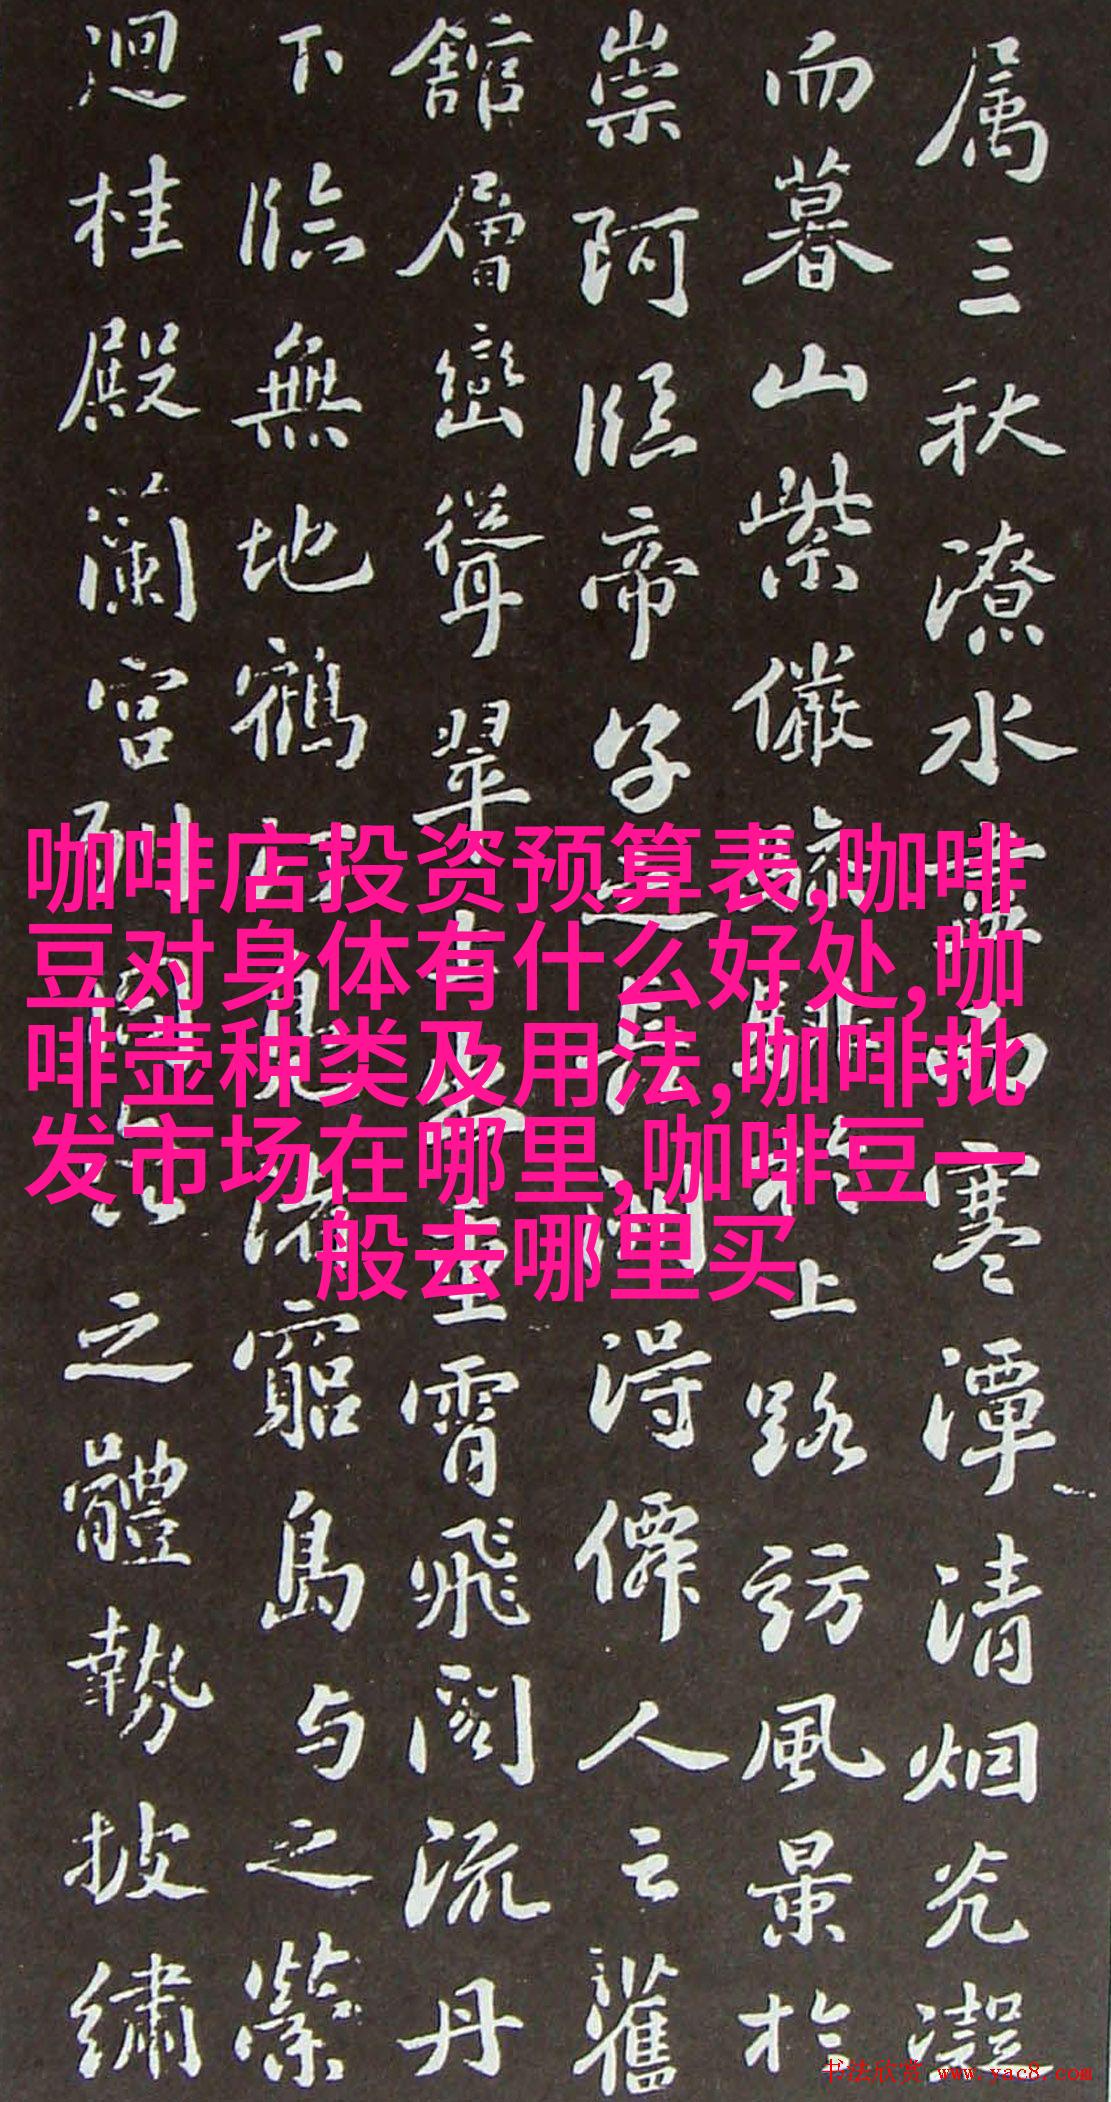 属三秋潦水盡而寒潭清烟光凝
而暮山紫儼驂騑於上路訪風景於
崇阿臨帝子之長洲得僊人之舊
舘層巒聳翠上出重霄飛閣流丹
下臨無地鶴汀鳧渚窮島与之縈
迴桂殿蘭宮列岡巒之體勢披繡
咖啡店投资预算表,咖啡
豆对身体有什么好处,咖
啡壶种类及用法,咖啡批
发市场在哪里,咖啡豆一
般去哪里买
书法欣赏 www.yac8.com